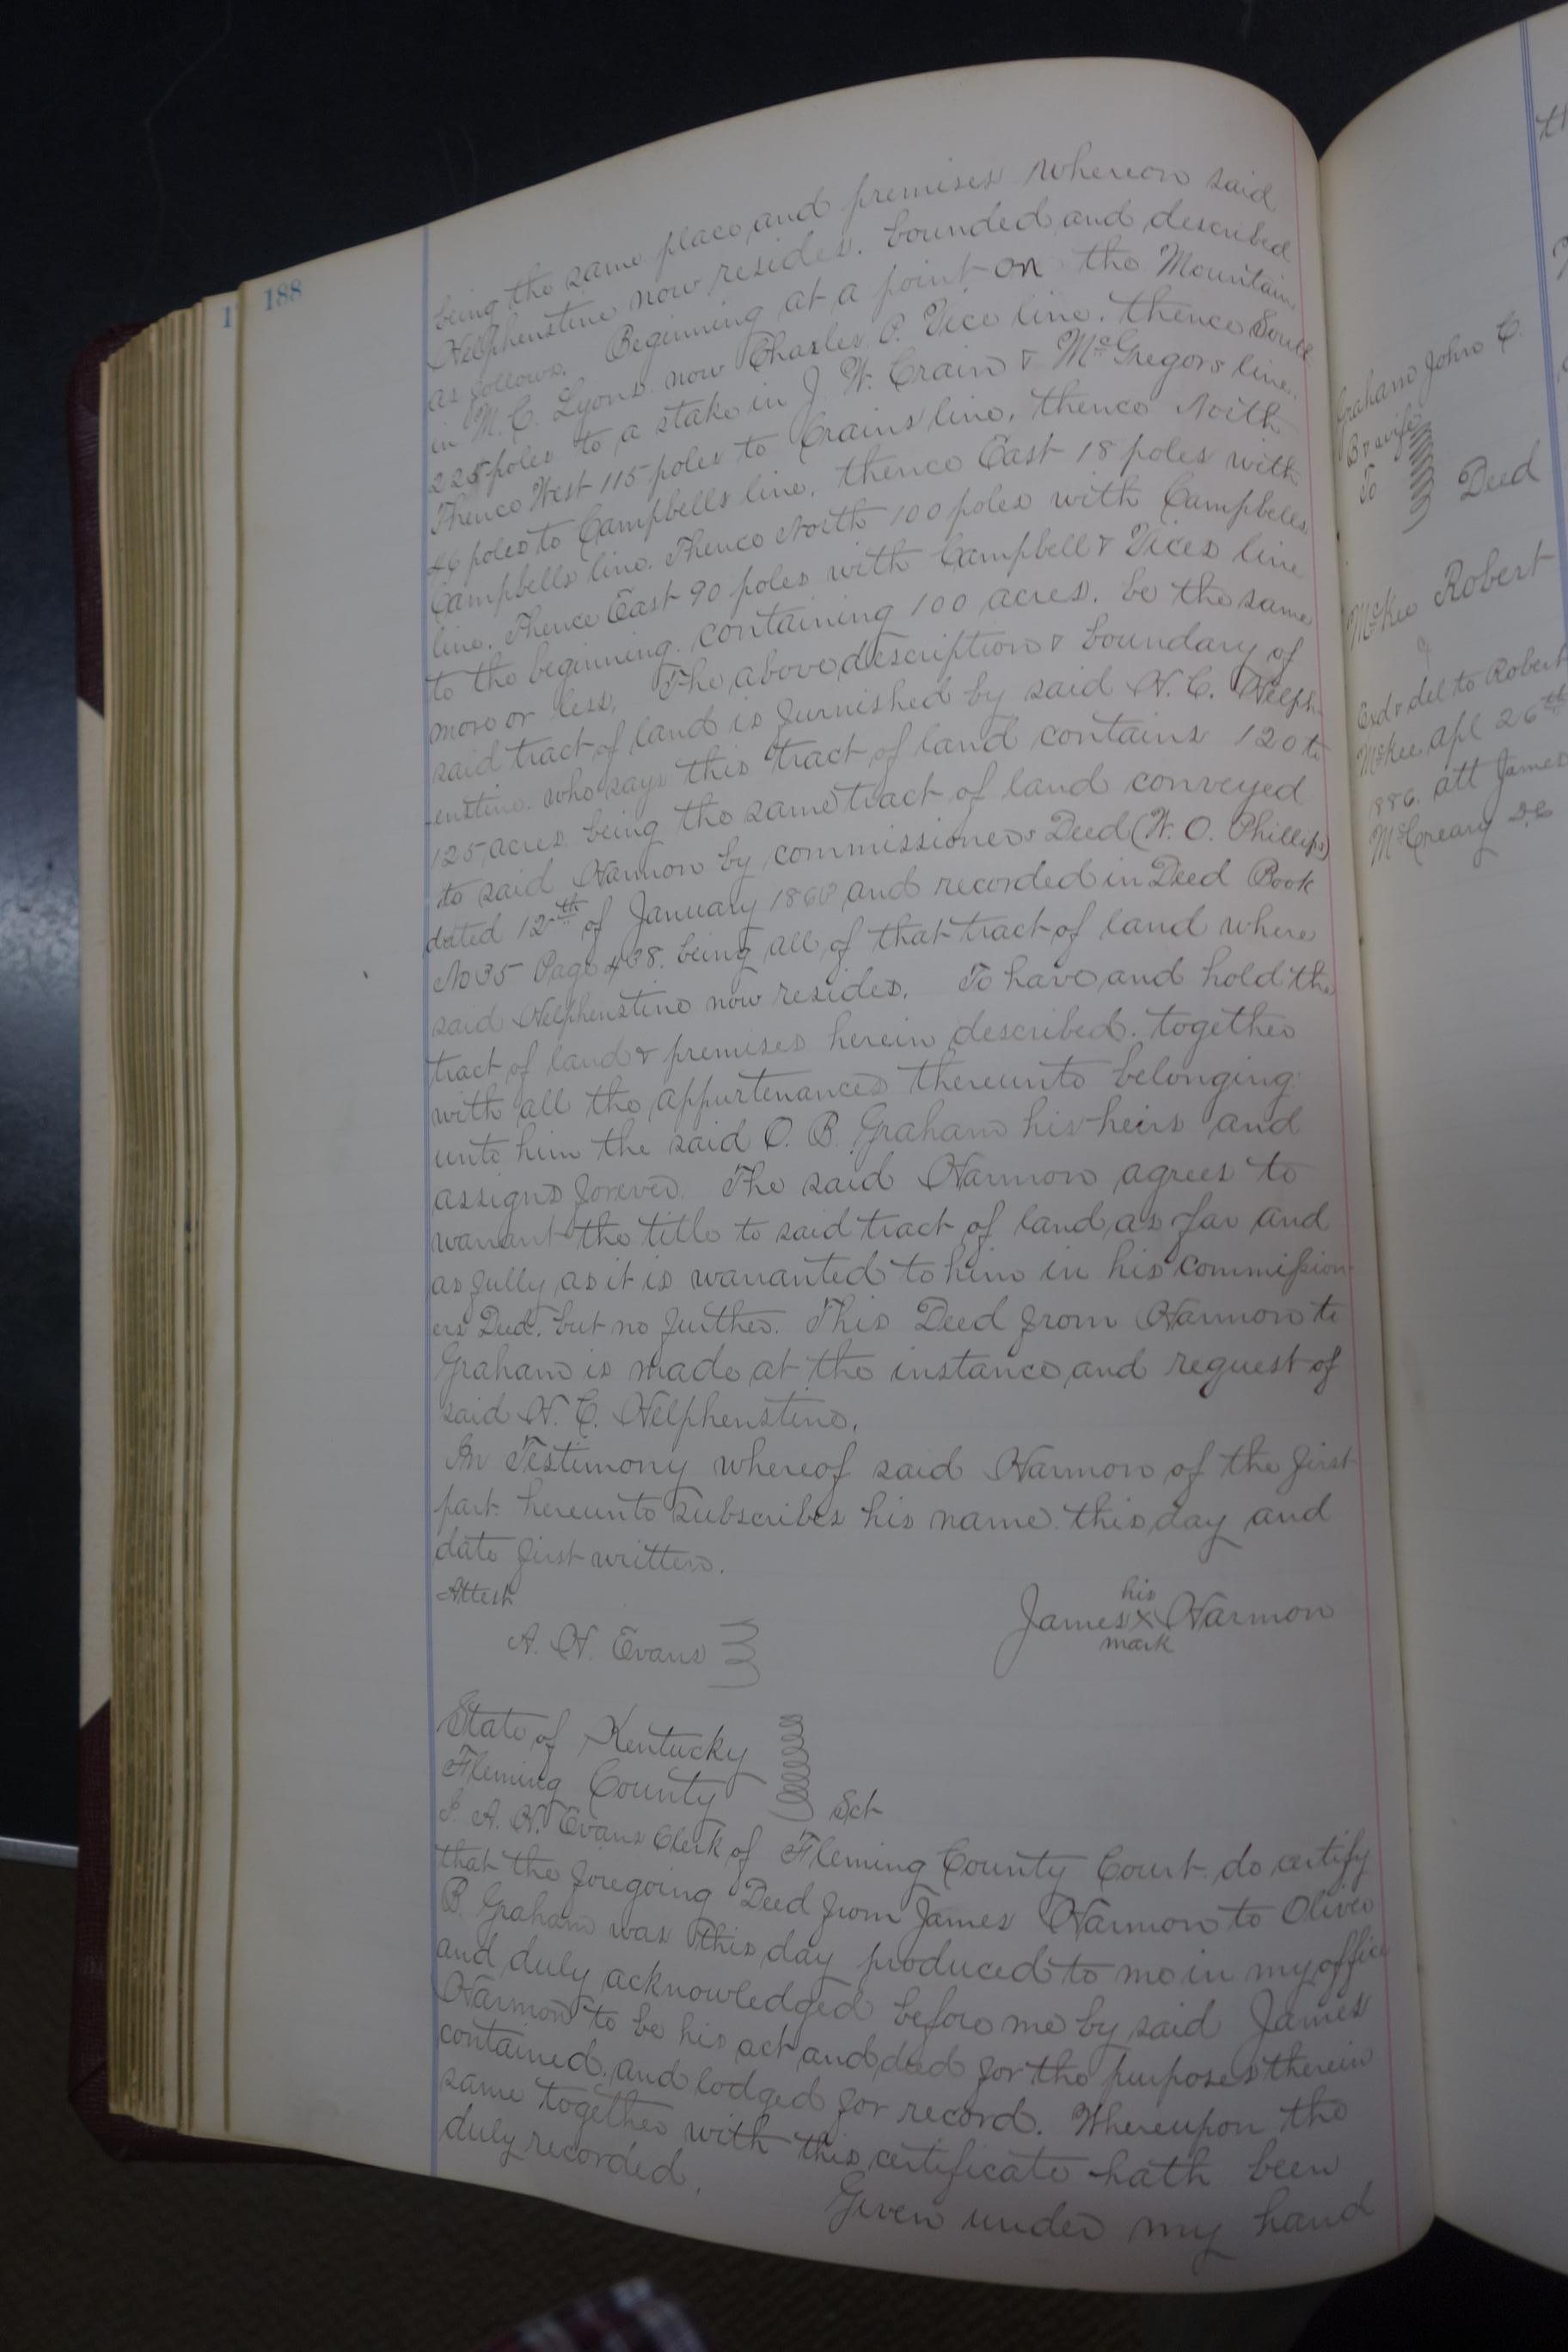 188
being the same place and premises whereon said
Helphenstine now resides. bounded and described
as follows. Beginning at a point on the Mountain
in M. C. Lyons. now Charles P. Vice line. thence South
225 poles to a stake in J. W. Crain & McGregors line.
Thence West 115 poles to Crains line. thence North
46 poles to Campbells line. thence East 18 poles with
Campbells line. Thence North 100 poles with Campbells
line. Thence East 90 poles with Campbell & Vices line
to the beginning. containing 100 acres. be the same
more or less. The above description & boundary of
said tract of land is furnished by said H. C. Helph
enstine. who says this tract of land contains 120 to
125 acres. being the same tract of land conveyed
to said Harmon by commissioners Deed (W. O. Phillips)
dated 12th of January 1860 and recorded in Deed Book
No 35 Page 438. being all of that tract of land where
said Helphenstine now resides. To have and hold the
tract of land & premises herein described. together
with all the appurtenances thereunto belonging
unto him the said O. B. Graham his heirs and
assigns forever. The said Harmon agrees to
warrant the title to said tract of land as far and
as fully as it is warranted to him in his commission
ers Deed. but no further. This Deed from Harmon to
Graham is made at the instance and request of
said H. C. Helphenstine.
In Testimony whereof said Harmon of the first
part. hereunto subscribes his name this day and
date first written.
Attest
A. H. Evans
his
James x Harmon
mark
State of Kentucky
Fleming County Sct
I. A. H. Evans Clerk of Fleming County Court do certify
that the foregoing Deed from James Harmon to Oliver
B. Graham was this day produced to me in my office
and duly acknowledged before me by said James
Harmon to be his act and deed for the purposes therein
contained. and lodged for record. Whereupon the
same together with this certificate hath been
duly recorded.
Given under my hand
Graham John C.
& wife
To Deed
McKee Robert
Exd & del to Robert
McKee apl 26th
1886. att James
McCreary DC